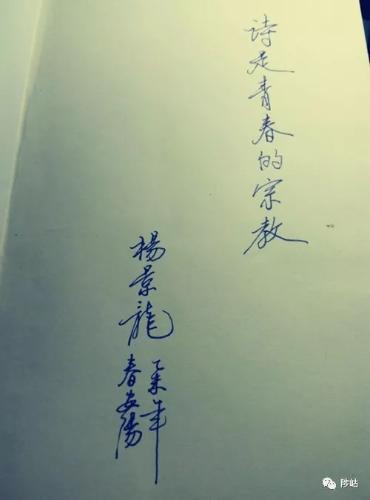 诗是青春的宗教
楊景龍
乙未年
春安陽
陟岵